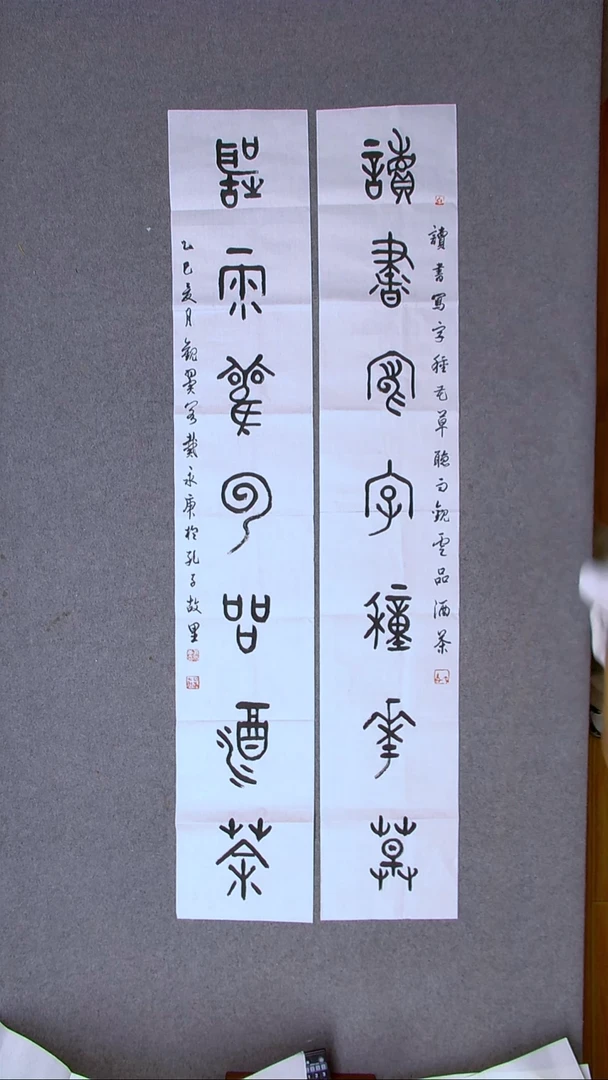 讀書寫字種花草
讀書寫字種花草聽雨觀雲品酒茶
聽雨觀雲品酒茶
乙巳亥月觀雲客戴永庚於孔子故里